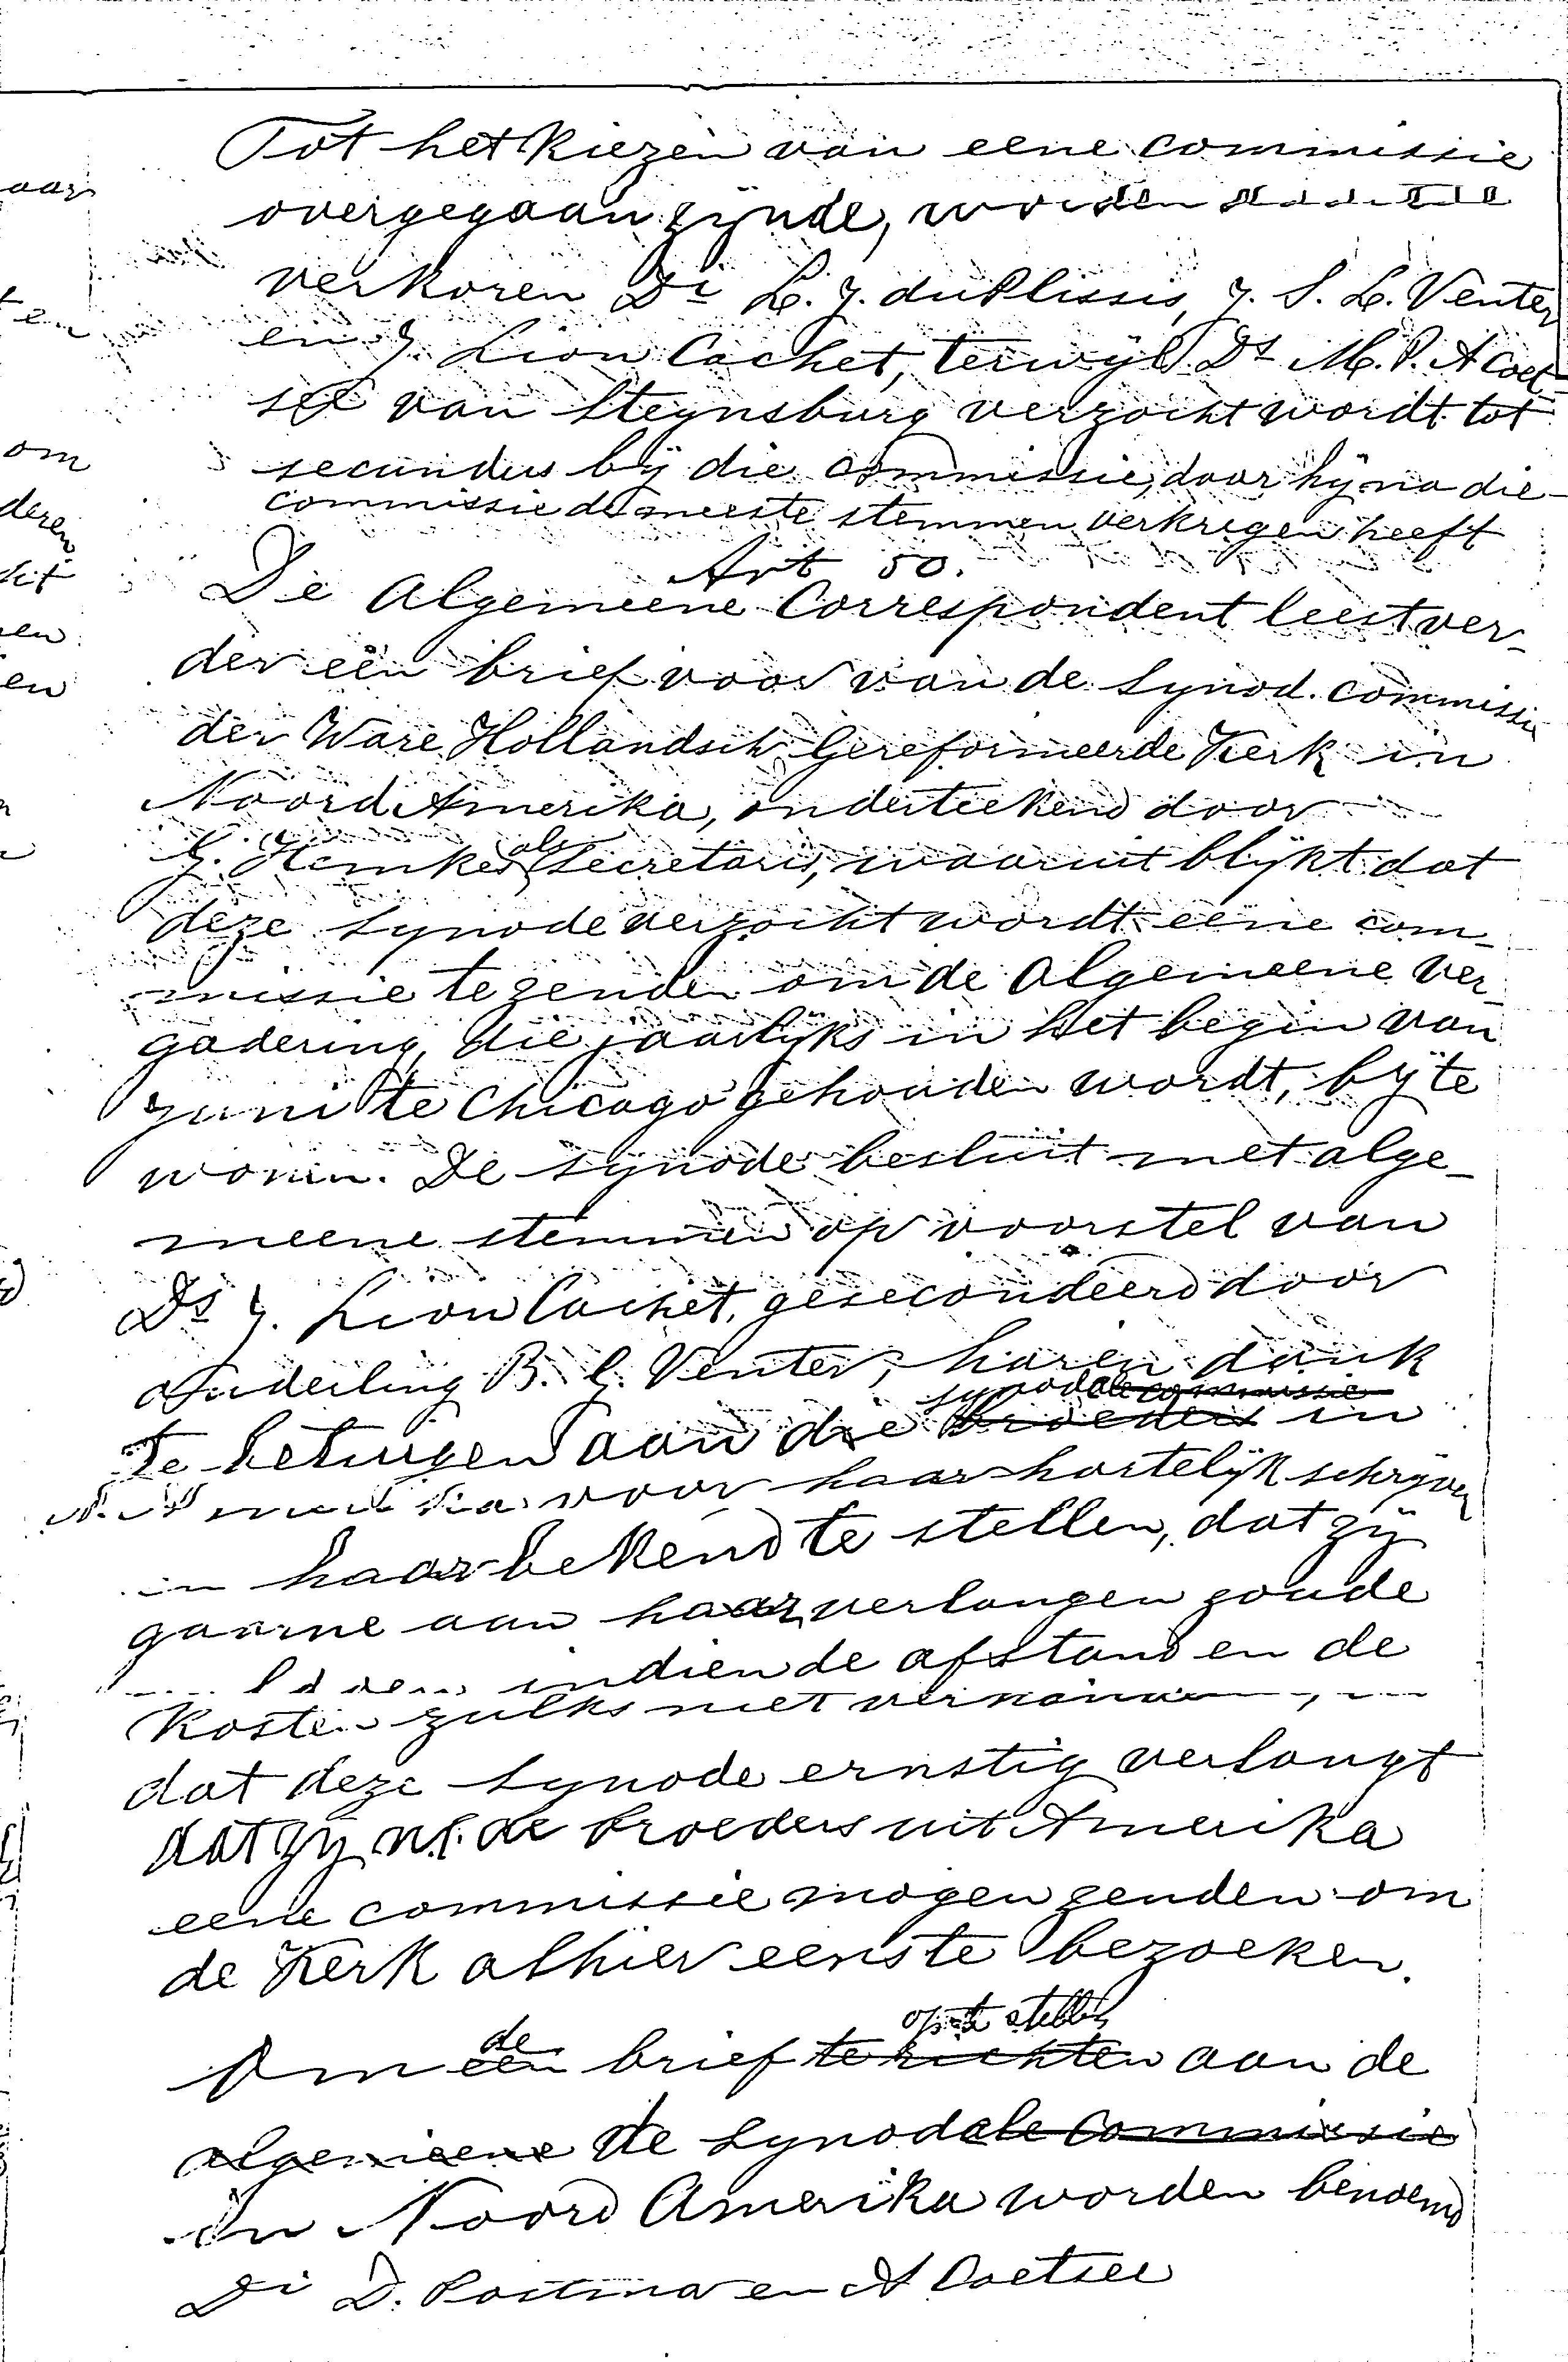 Tot het kiezen van eene commissie
overgegaan zijnde, worden
verkoren Di L. J. du Plissis, J. S. L. Venter
en J. Lion Cachet, terwijl Ds M. P. A Coet-
see van Steynsburg verzocht wordt tot
secundus bij die commissie, daar hij na die
commissie de meeste stemmen verkregen heeft
Art 50.
De Algemeene Correspondent leest ver-
der een brief voor van de Synod. commissie
der Ware Hollandsch Gereformeerde Kerk in
Noord Amerika, onderteekend door
G. Hemkes als Secretaris, waaruit blijkt dat
deze synode verzocht wordt eene com-
missie te zenden om de Algemeene Ver-
gadering, die jaarlijks in het begin van
Juni te Chicago gehouden wordt, bij te
wonen. De synode besluit met alge-
meene stemmen op voorstel van
Ds J. Lion Cachet, gesecondeerd door
Ouderling B. G. Venter, haren dank
synodale commissie
te betuigen aan die broeders in
voor haar hartelijk schrijven
haar bekend te stellen, dat zij
gaarne aan haar verlangen zoude
indien de afstand en de
kosten zulks niet
dat deze Synode ernstig verlangt
dat zij n.l. de broeders uit Amerika
eene commissie mogen zenden om
de Kerk alhier eens te bezoeken.
de op te stellen
Om een brief te richten aan de
algemeene de Synodale Commissie
in Noord Amerika worden benoemd
Di D. Postma en A Coetsee
aar
ten
om
deren
dit
en
en